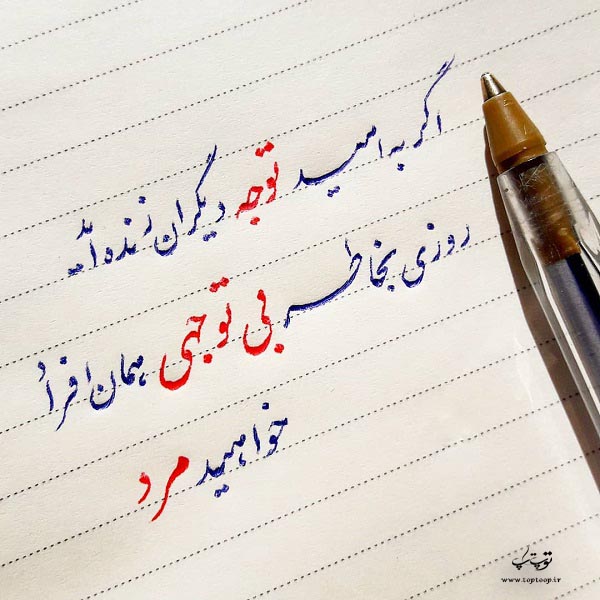 اگر به امید توجه دیگران زنده اید
روزی بخاطر بی توجهی همان افراد
خواهید مرد
توپ تاپ
www.toptoop.ir